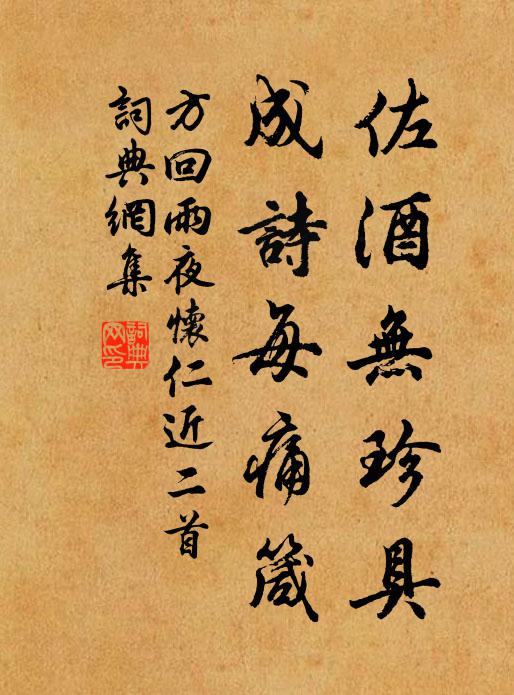 佐酒無珍具
成詩每痛箴
方回雨夜懷仁近二首
詞典網集
詞典网印